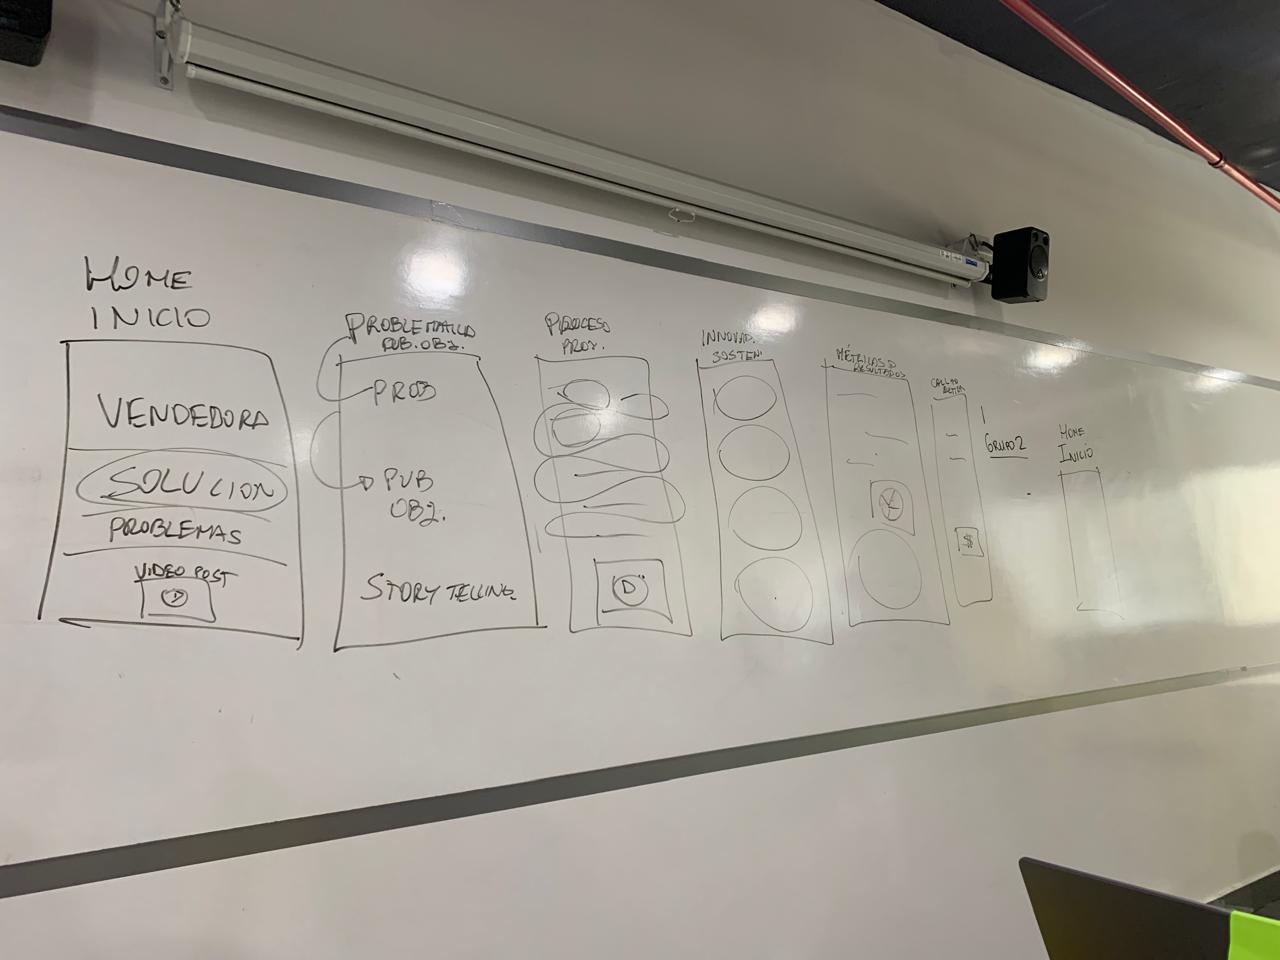 HOME
INICIO
VENDEDORA
SOLUCION
PROBLEMAS
VIDEO POST
PROBLEMATICA
PUB. OBJ.
PROB
PUB
OBJ.
STORYTELLING
PROCESO
PROY.
INNOVAD.
SOSTEN.
MÉTRICAS D
RESULTADOS
CALL TO
ACTION
$
GRUPO 2
HOME
INICIO